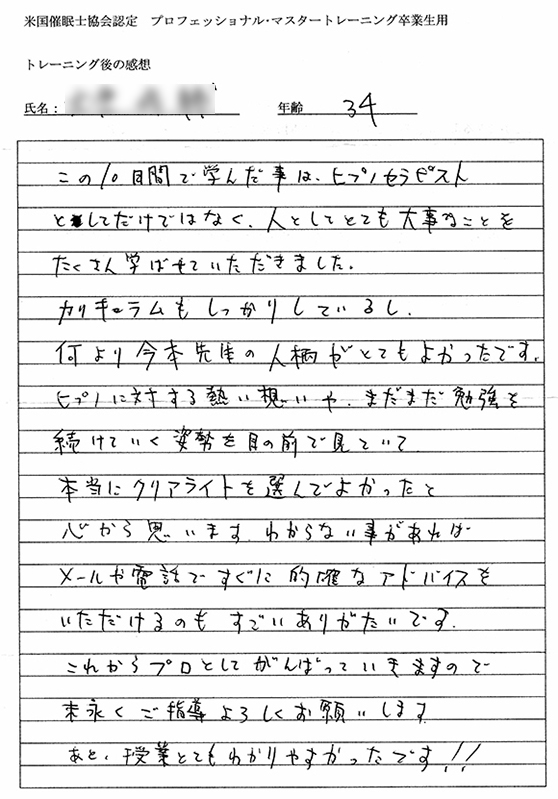 米国催眠士協会認定　プロフェッショナル・マスタートレーニング卒業生用
トレーニング後の感想
氏名：　　年齢　34
この10日間で学んだ事は、ヒプノセラピスト
としてだけではなく、人としてとても大事なことを
たくさん学ばせていただきました。
カリキュラムもしっかりしているし、
何より今本先生の人柄がとてもよかったです。
ヒプノに対する熱い想いや、まだまだ勉強を
続けていく姿勢を目の前で見ていて
本当にクリアライトを選んでよかったと
心から思います。わからない事があれば
メールや電話ですぐに的確なアドバイスを
いただけるのもすごいありがたいです。
これからプロとしてがんばっていきますので
末永くご指導よろしくお願いします
あと、授業とてもわかりやすかったです!!